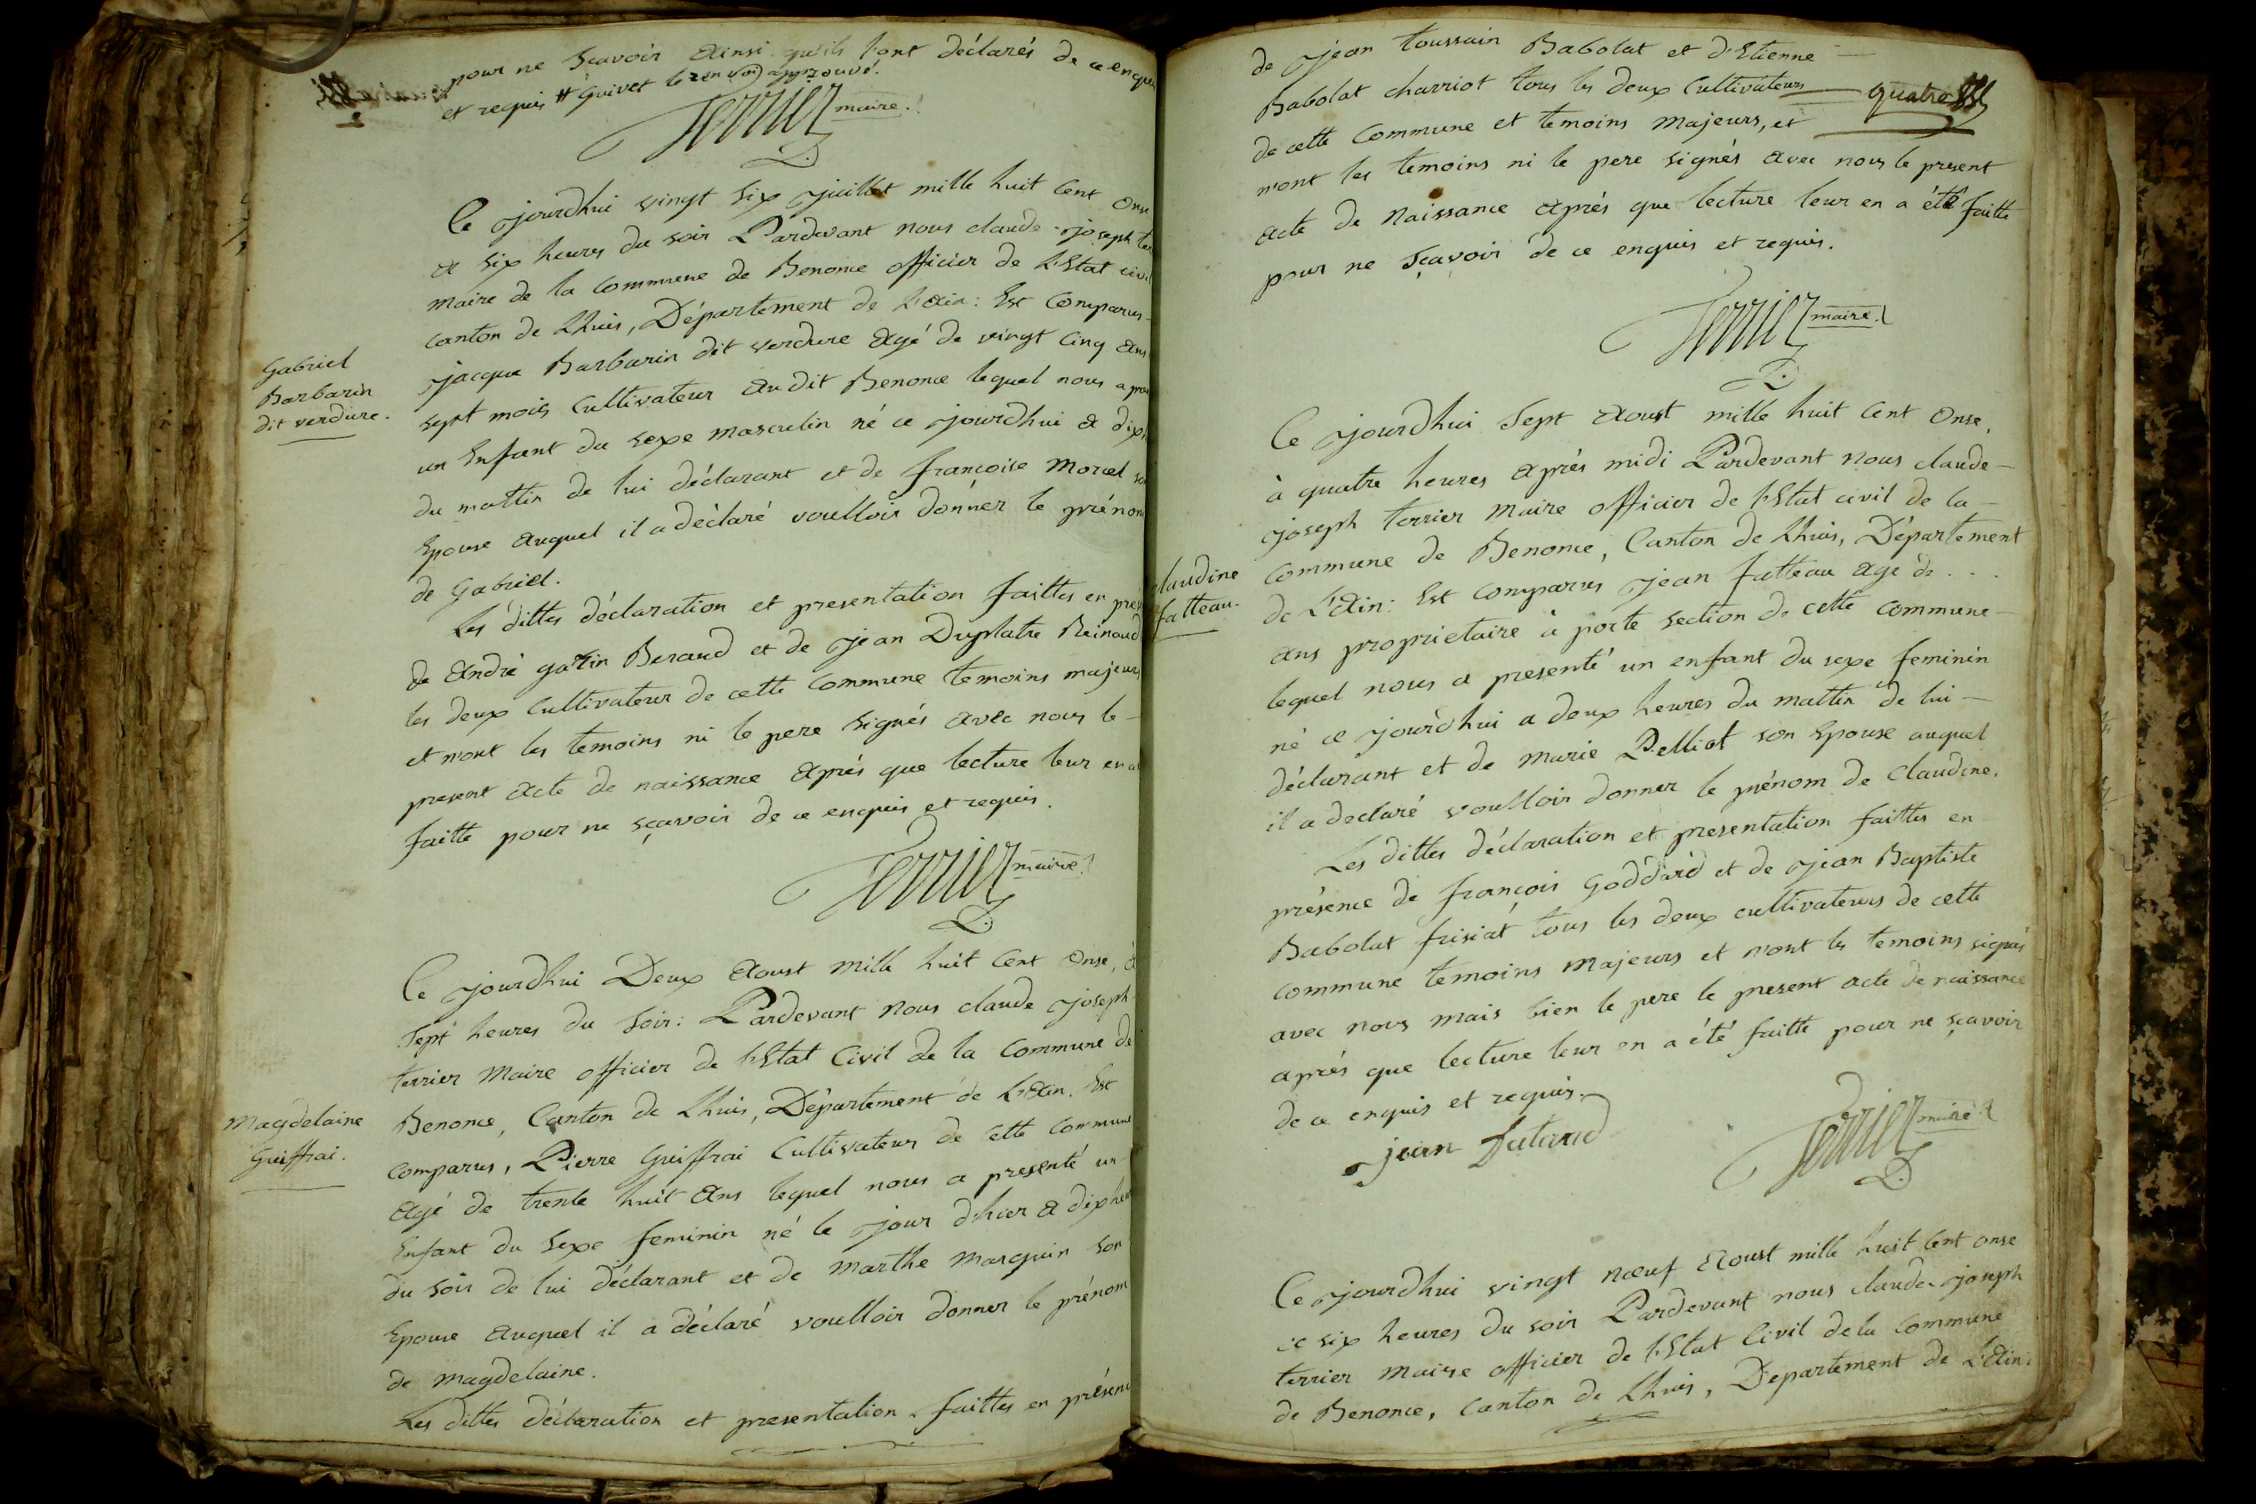 pour ne sçavoir ainsi qu'ils l'ont déclarés de ce enquis
et requis # Guivet le renvoi approuvé.
Terrier maire.
Ce jourdhui vingt six juillet mille huit cent onse
a six heures du soir Pardevant nous claude-joseph
maire de la commune de Benonce officier de l'Etat civil
canton de Lhuis, Département de L'Ain: Est comparus
Gabriel
Barbarin
dit verdure.
jacque Barbarin dit verdure agé de vingt cinq ans
sept mois cultivateur au dit Benonce lequel nous a
un Enfant du sexe masculin né ce jourdhui a dix
du mattin de lui déclarant et de françoise Morcel
Epouse auquel il a déclaré voulloir donner le prénom
de Gabriel.
Les dittes déclaration et presentation faittes en
de André gattin Beraud et de jean Duplatre Reinaud
les deux cultivateur de cette commune temoins majeurs
et n'ont les temoins ni le pere signés avec nous le
present acte de naissance aprés que lecture leur en a
faitte pour ne sçavoir de ce enquis et requis.
Terrier maire.
Ce jourdhui Deux Aoust mille huit cent onse, à
sept heures du soir: Pardevant nous claude joseph
terrier Maire officier de l'Etat civil de la commune de
Magdelaine
Guiffrai.
Benonce, Canton de Lhuis, Département de L'Ain. Est
comparus, Pierre Guiffrai Cultivateur de cette commune
agé de trente huit ans lequel nous a presenté un
Enfant du sexe feminin né le jour d'hier a dix
du soir de lui déclarant et de Marthe Marguin son
Epouse auquel il a déclaré voulloir donner le prénom
de Magdelaine.
Les dittes déclaration et presentation faittes en présence
de jean toussain Babolat et d'Etienne
Babolat charriot tous les deux cultivateurs
quatre
de cette commune et temoins majeurs, et
n'ont les temoins ni le pere signés avec nous le present
acte de naissance aprés que lecture leur en a été faitte
pour ne sçavoir de ce enquis et requis.
Terrier maire.
Ce jourdhui sept Aoust mille huit cent onse,
à quatre heures aprés midi Pardevant nous claude-
joseph terrier Maire officier de l'Etat civil de la
commune de Benonce, Canton de Lhuis, Département
claudine
fatteau.
de L'Ain: Est comparus jean fatteau agé de . . .
ans proprietaire à porte section de cette commune
lequel nous a presenté un enfant du sexe feminin
né ce jourdhui a deux heures du mattin de lui
déclarant et de Marie Pelliot son Epouse auquel
il a declaré voulloir donner le prénom de Claudine.
Les dittes déclaration et présentation faittes en
présence de françois Goddard et de jean Baptiste
Babolat frisiat tous les deux cultivateurs de cette
commune temoins majeurs et n'ont les temoins signés
avec nous mais bien le pere le present acte de naissance
aprés que lecture leur en a été faitte pour ne sçavoir
de ce enquis et requis.
jean fataud
Terrier maire
Ce jourdhui vingt nœuf Aoust mille huit cent onse
a six heures du soir Pardevant nous claude joseph
terrier maire officier de l'Etat Civil de la commune
de Benonce, Canton de Lhuis, Département de L'Ain: